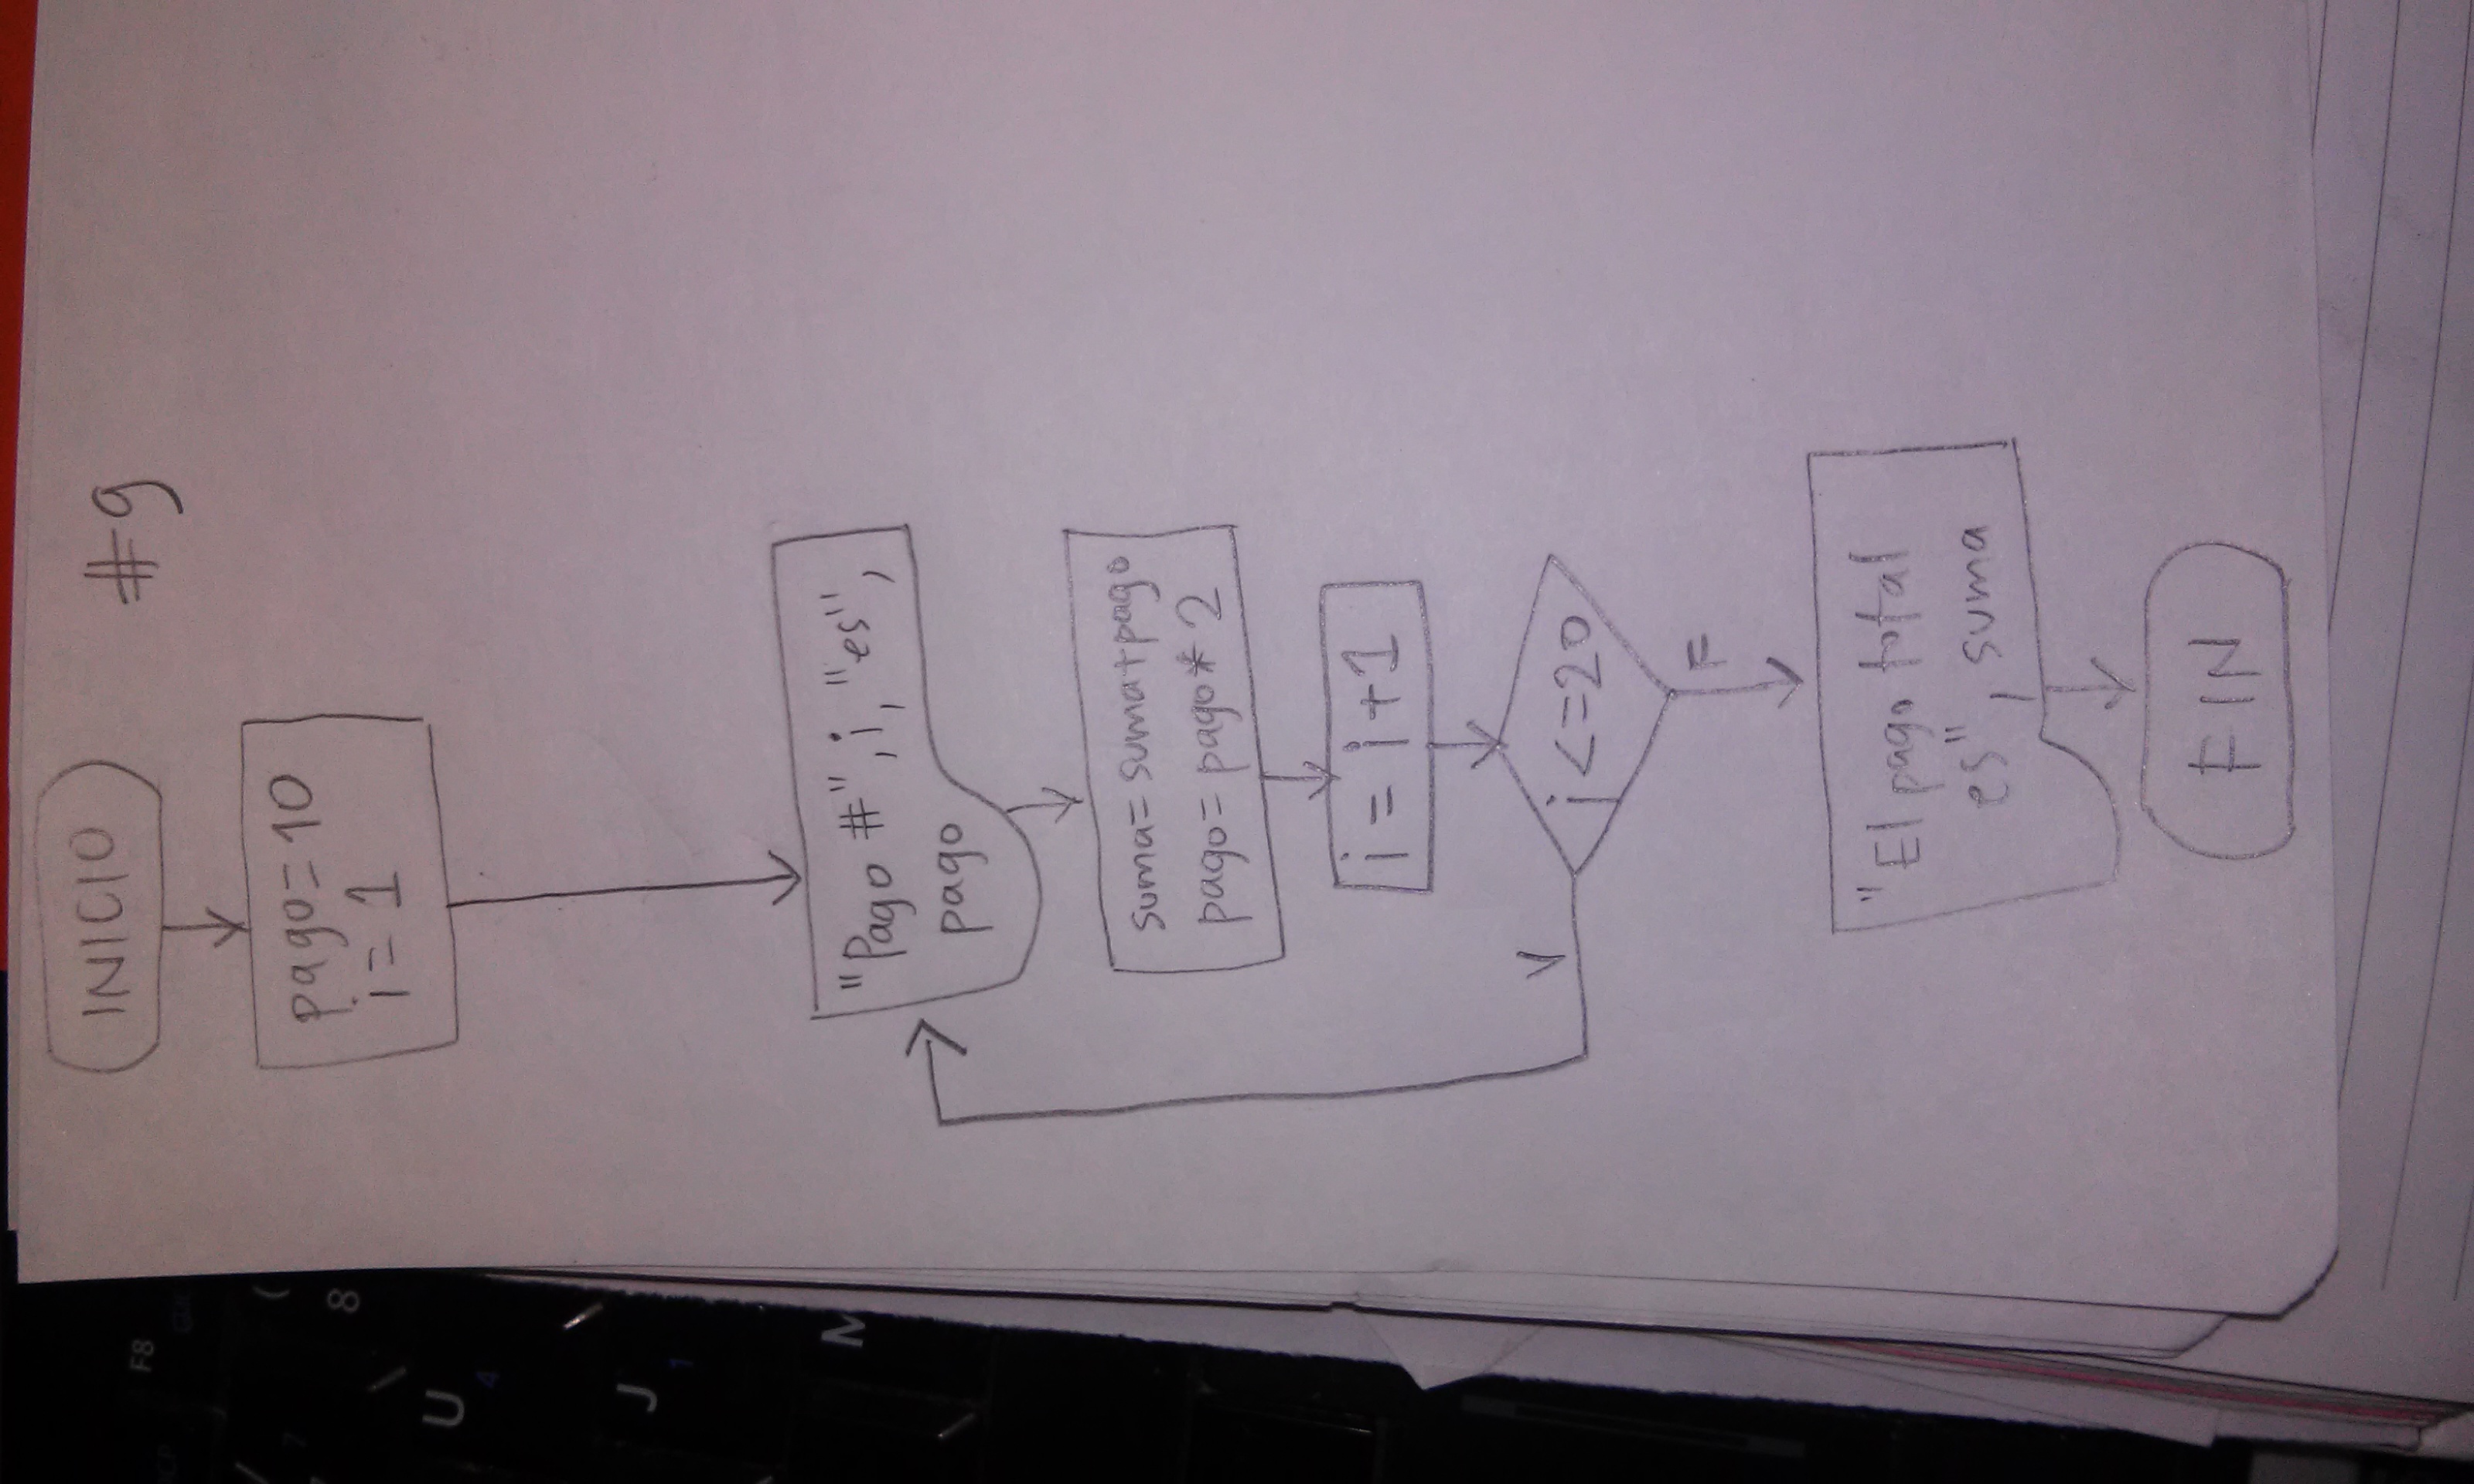 INICIO
#9
pago=10
i=1
"Pago #", i, "es",
pago
suma=suma+pago
pago=pago*2
i = i+1
i<=20
V
F
"El pago total
es", suma
FIN
F8
7
(
8
U
4
J
1
M